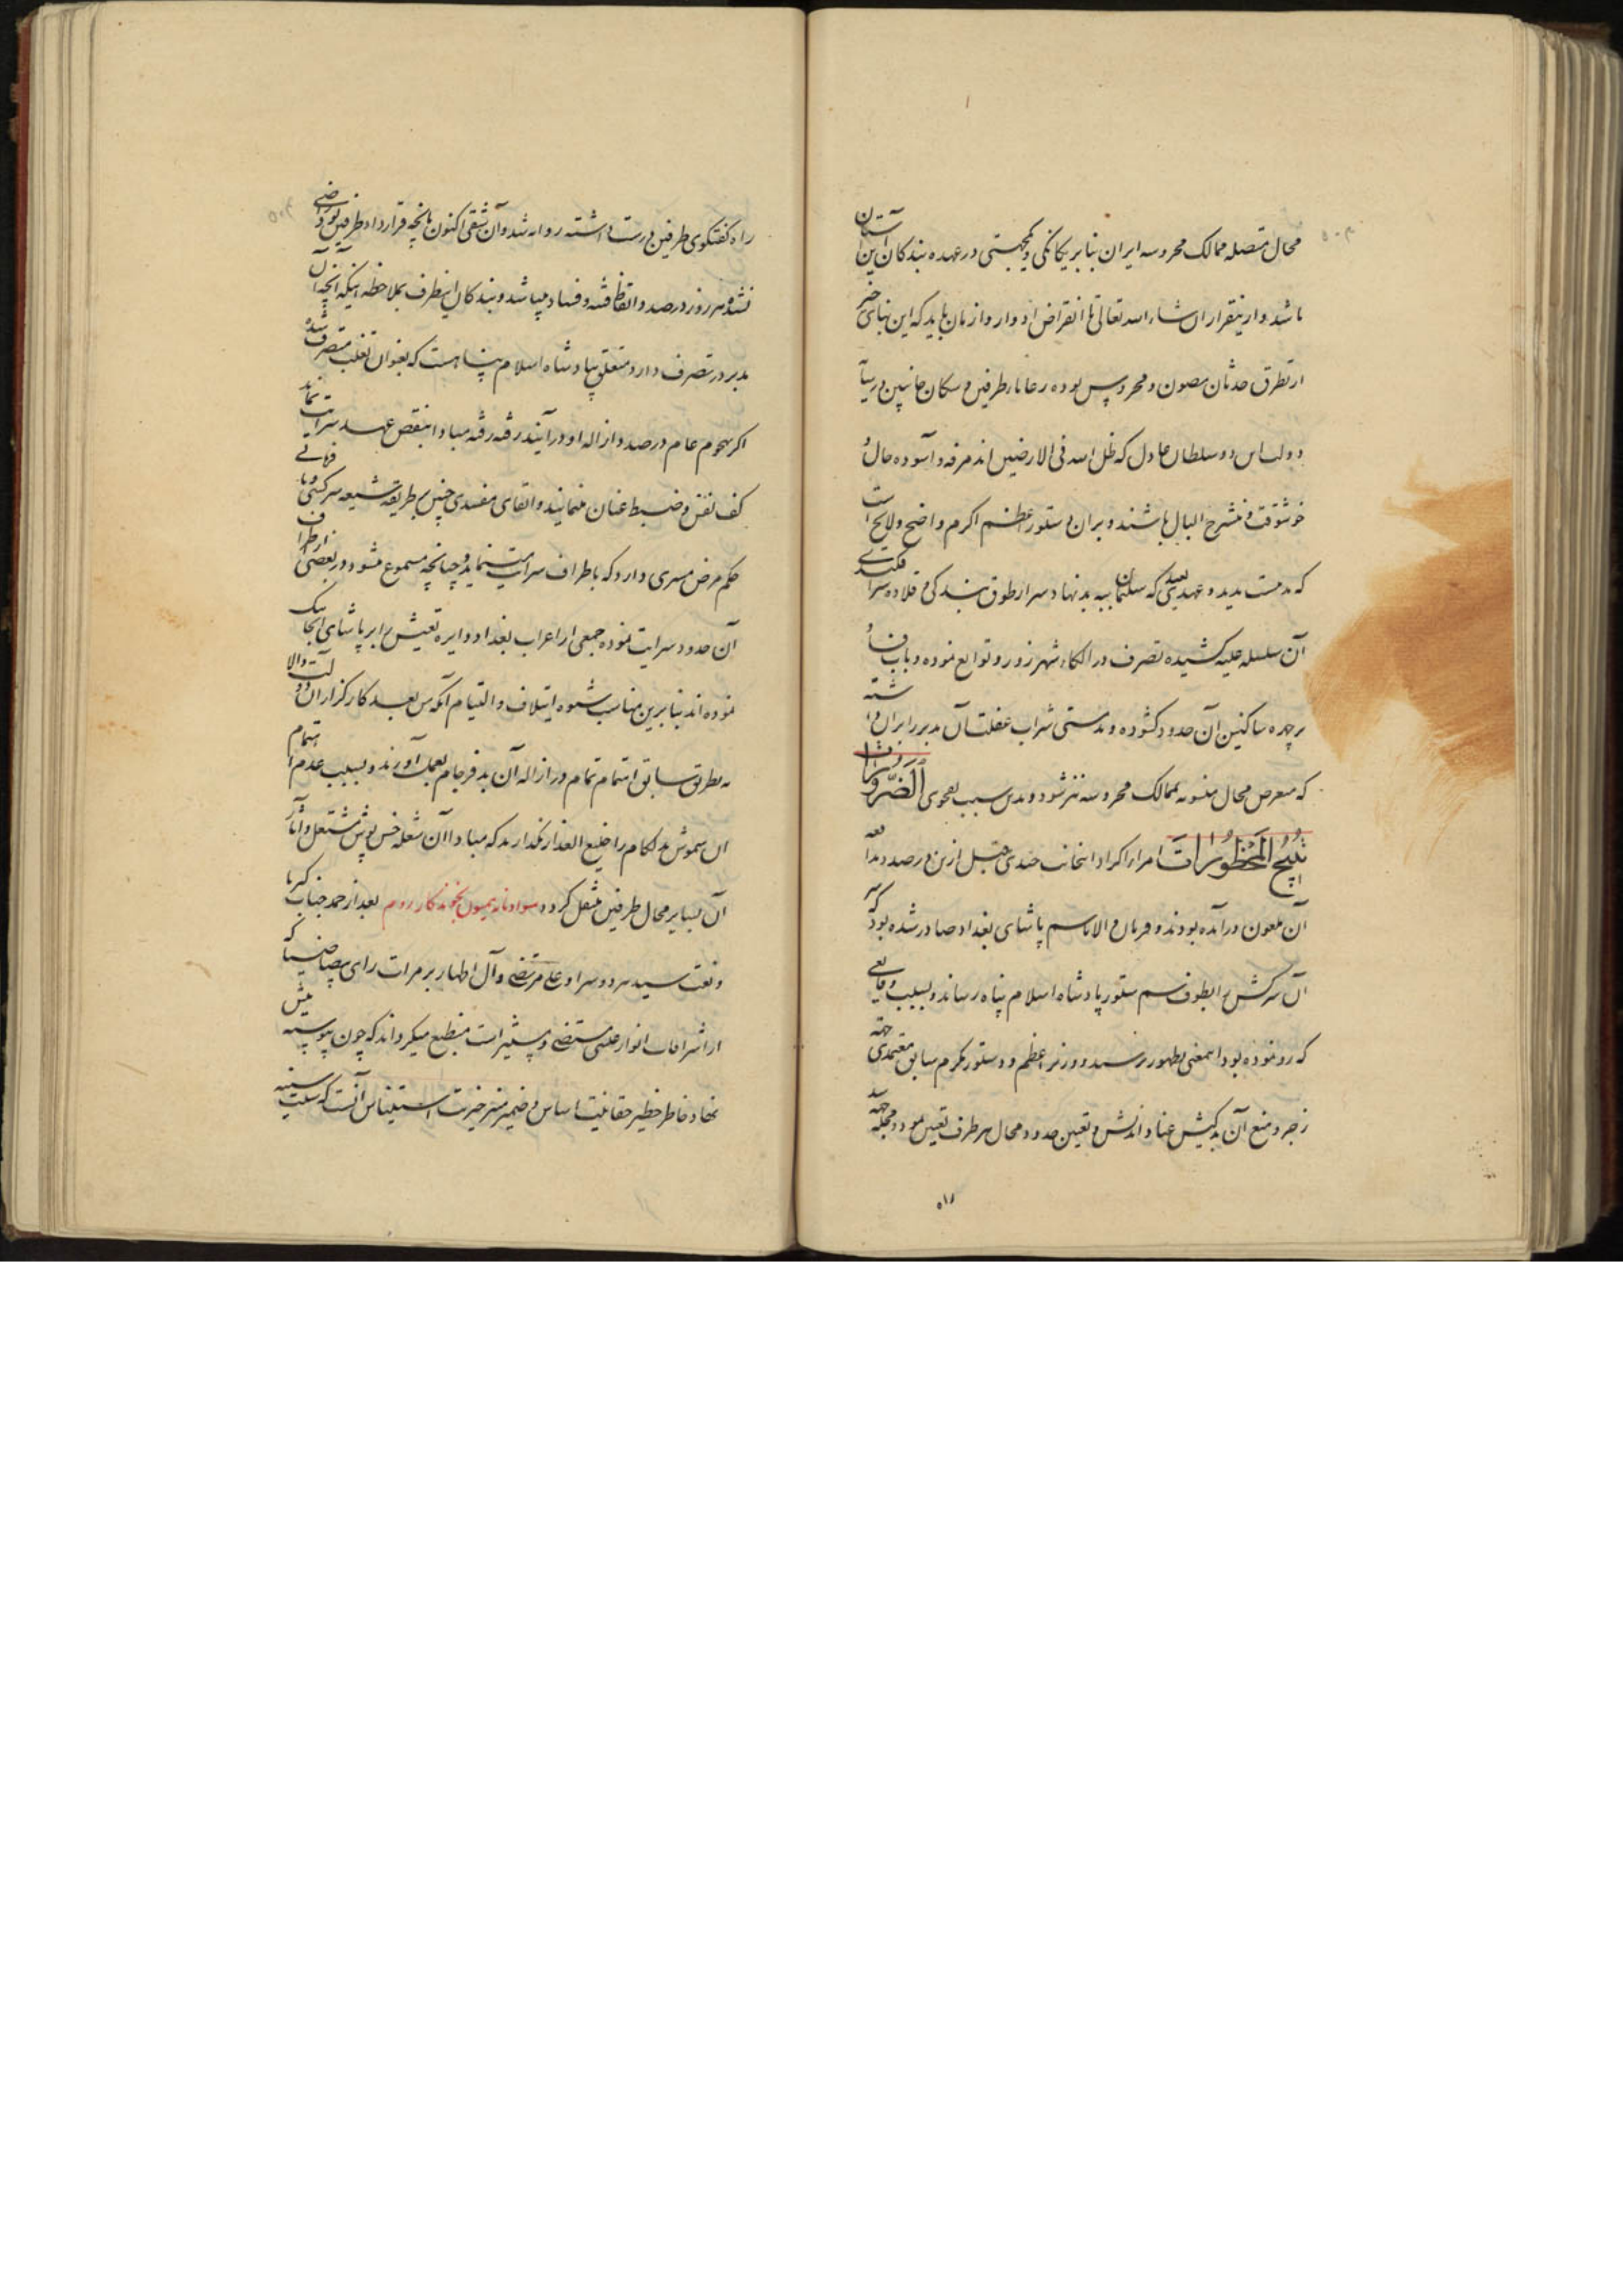 محال متصله ممالک محروسه ایران بنابر یکانکی و یکجهتی در عهده بندکان این آستان
باشد و از ینقرار ان شاء الله تعالی تا انقراض ادوار و ازمان باید که این بنای خیر
از تطرق حدثان مصون و محروس بوده رعایا طرفین و سکان جانبین در سایه
دولت این دو سلطان عادل که ظل الله فی الارضین اند مرفه و آسوده حال و
خوشوقت و منشرح البال باشند و بران دستور اعظم اکرم واضح و لایح است
که مدت مدید و عهد بعید که سلیمان ببه بدنهاد سر از طوق بندکی و قلاده
آن سلسله علیه کشیده تصرف در الکاء شهر زور و توابع نموده و باب
بر چهره ساکنین آن حدود کشوده و مستی شراب غفلت آن مدبر را بران داشته
که متعرض محال منسوبه بممالک محروسه نیز شود و بدین سبب بفحوی الضرورات
تبیح المحظورات امراء اکراد اینجانب چندی قبل ازین در صدد مدافعه
آن ملعون درآمده بودند و فرمان والا باسم پاشای بغداد صادر شده بود که سر
آن سرکش را بطوف سم ستور پادشاه اسلام پناه رساند و بسبب وقایعی
که رو نموده بود اینمعنی بظهور نرسید و وزیر اعظم و دستور مکرم سابق معتمدی جهة
زجر و منع آن بدکیش عناد اندیش و تعیین حدود و محال هر طرف تعیین نموده و
راه کفتکوی طرفین درست داشته روانه شد و آن شقی اکنون بآنچه قرارداد طرفین بود راضی
نشده هر روز در صدد ایقاظ فتنه و فساد میباشد و بندکان اینطرف بملاحظه اینکه آنچه آن
مدبر در تصرف دارد متعلق بپادشاه اسلام پناهست که بعنوان تغلب متصرف شده
اکر بهجوم عام در صدد ازاله او درآیند رفته رفته مبادا بنقض عهد سرایت نماید
کف نفس و ضبط عنان مینمایند و ابقای مفسدی چنین بر طریقه شنیعه سرکشی و نافرمانی
حکم مرض مسری دارد که باطراف سرایت مینماید و چنانچه مسموع میشود در بعضی از اطراف
آن حدود سرایت نموده جمعی از اعراب بغداد دایره تعیش را بر پاشای آنجا تنک
نموده اند بنابرین مناسب شیوه ایتلاف و التیام آنکه من بعد کارکزاران دولت والا
به طریق سابق اهتمام تمام در ازاله آن بدفرجام بعمل آورند و بسبب عدم اهتمام
آن شموش بدلکام را خلیع العذار نکذارند که مبادا آن شعله خس پوش مشتعل و آثار
آن بسایر محال طرفین منتقل کردد سواد نامه همیون بخوندکار روم بعد از حمد جناب کبریا
و نعت سید هر دو سرا و علی مرتضی و آل اطهار بر مرات رای بیضا ضیا که
از اشراقات انوار حلمی مستضی و مستنیر است منطبع میکرداند که چون پیوسته پیش
نهاد خاطر خطیر حقانیت اساس و ضمیر منیر خیریت استیناس آنست که سلسله
۵۱۱